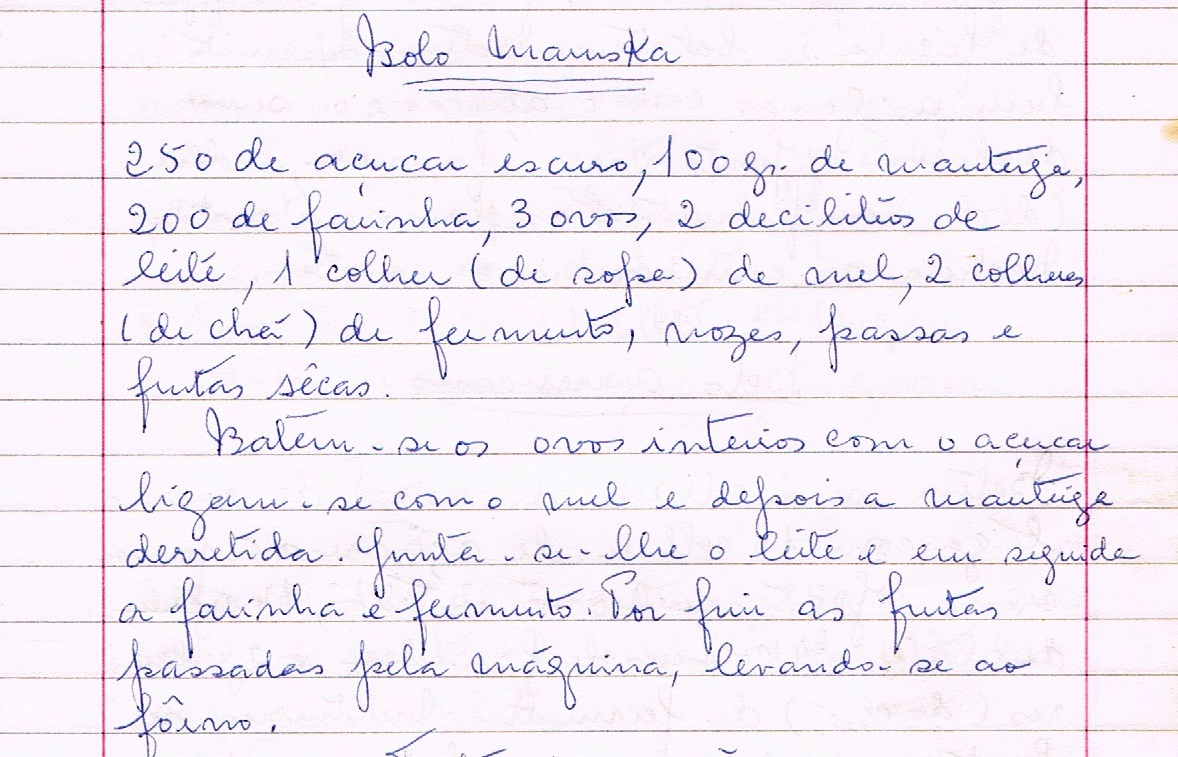 Bolo Mamska
250 de açucar escuro, 100 gr. de manteiga,
200 de farinha, 3 ovos, 2 decilitros de
leite, 1 colher (de sopa) de mel, 2 colheres
(de chá) de fermento, nozes, passas e
frutas sêcas.
Batem-se os ovos inteiros com o açucar
ligam-se com o mel e depois a manteiga
derretida. Junta-se-lhe o leite e em seguida
a farinha e fermento. Por fim as frutas
passadas pela máquina, levando-se ao
fôrno.